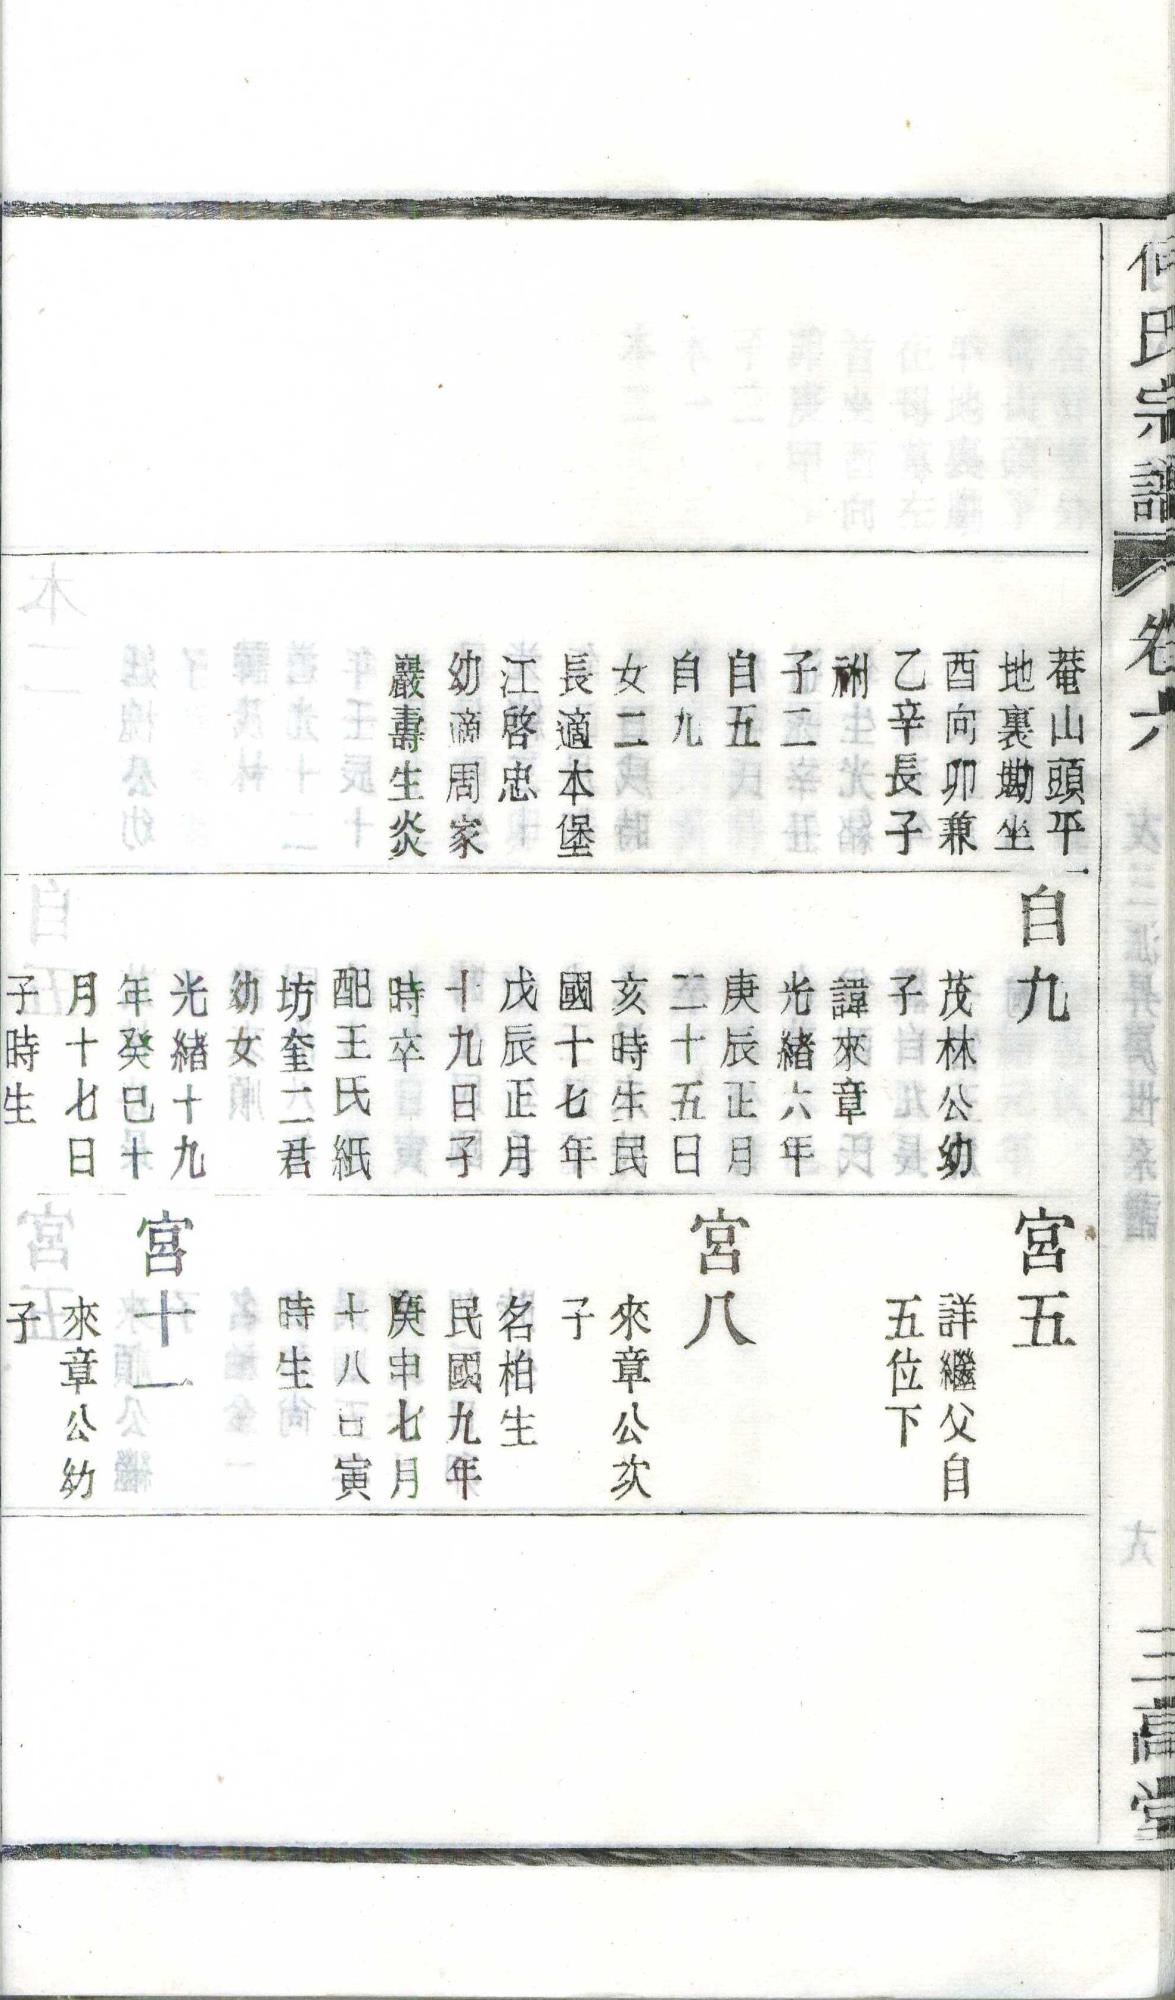 何氏宗譜
卷六
三高堂
菴山頭平
地裏勘坐
酉向卯兼
乙辛長子
祔
子二
自五
自九
女二
長適本堡
江啓忠
幼適周家
巖壽生炎
自九
茂林公幼
子
諱來章
光緒六年
庚辰正月
二十五日
亥時生民
國十七年
戊辰正月
十九日子
時卒
配王氏紙
坊奎二君
幼女
光緒十九
年癸巳十
月十七日
子時生
宮五
詳繼父自
五位下
宮八
來章公次
子
名柏生
民國九年
庚申七月
十八日寅
時生
宮十一
來章公幼
子